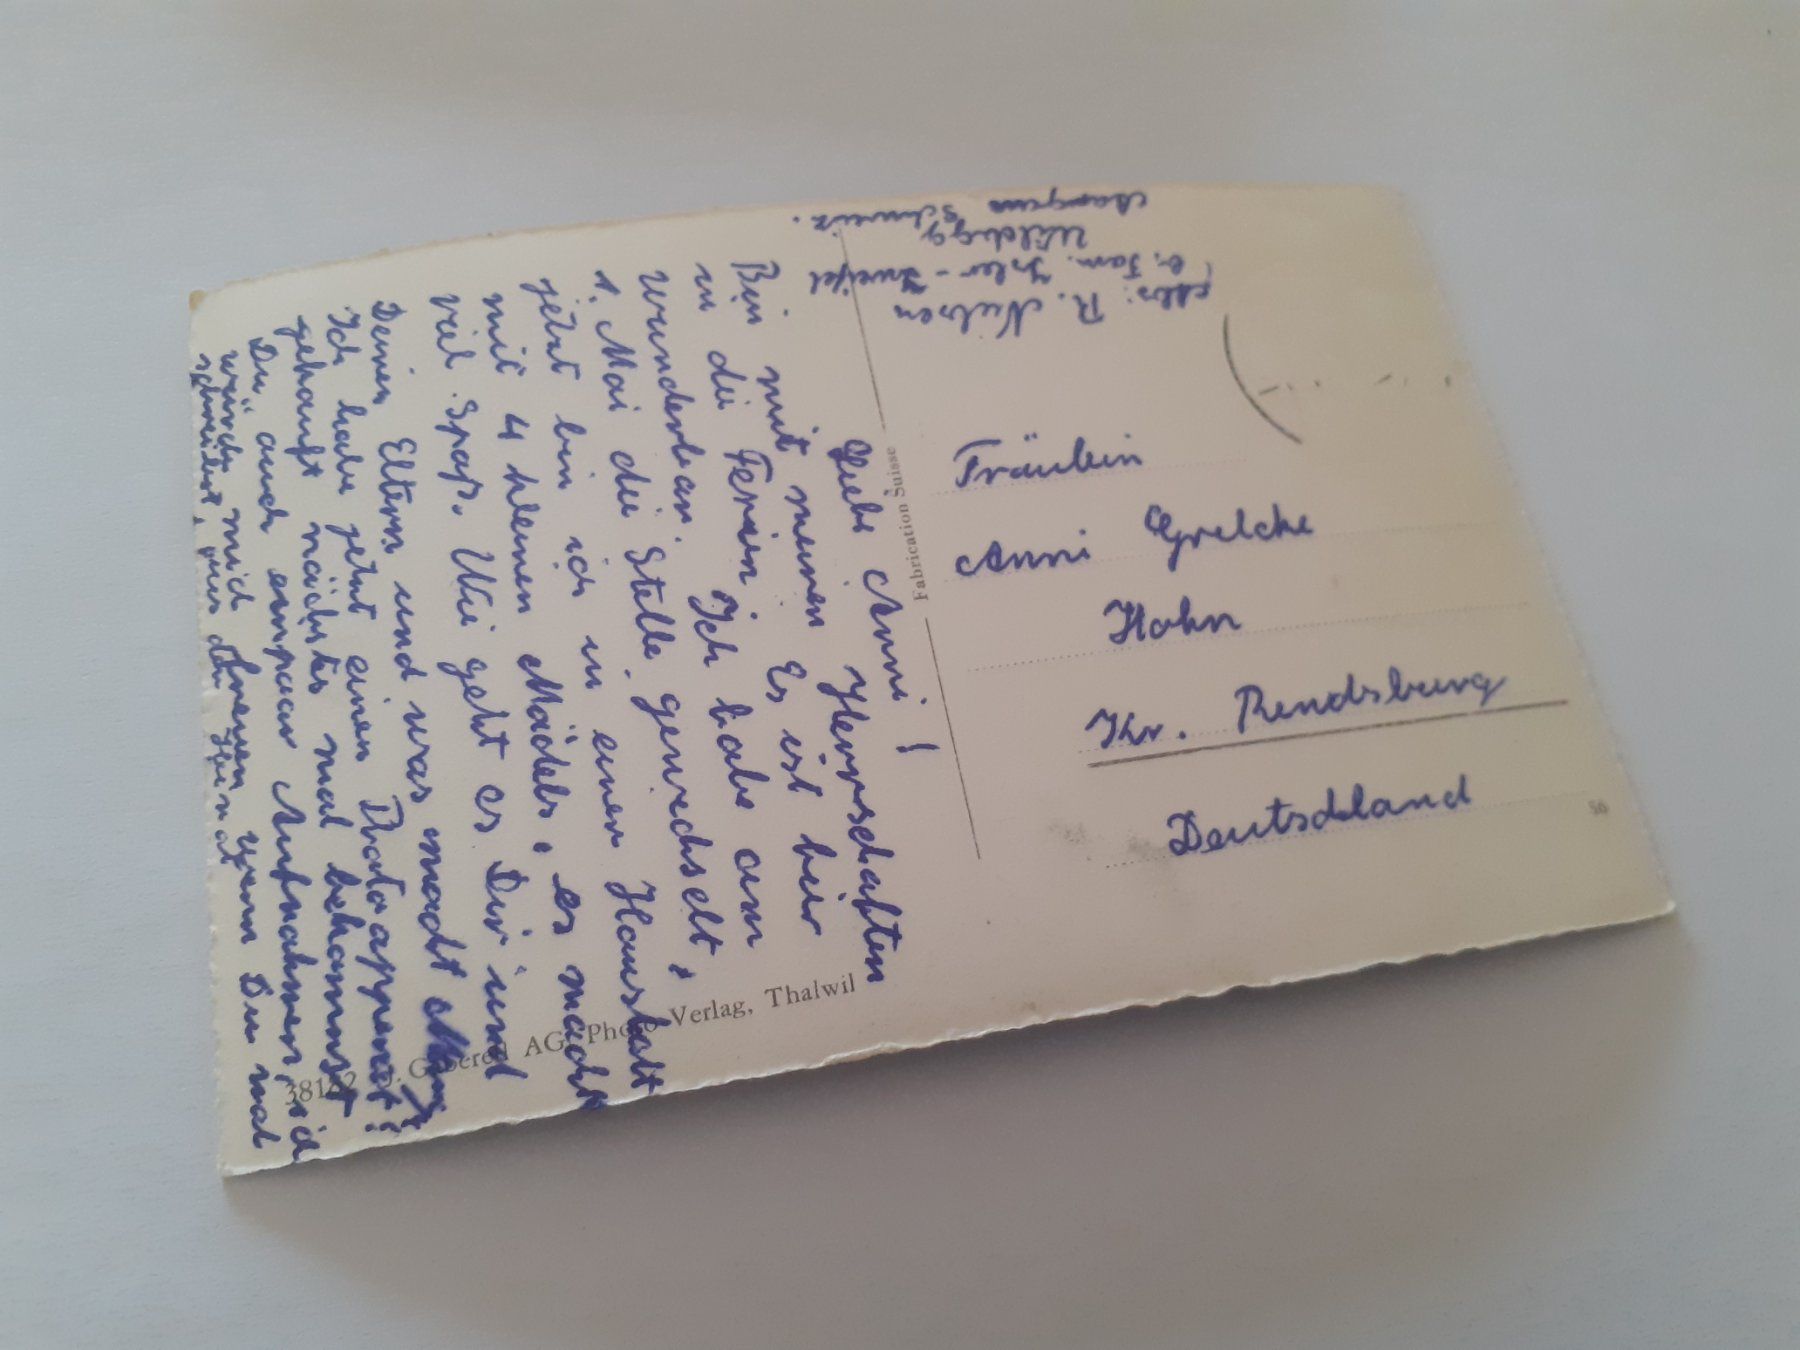 Liebe Anni!
Bin mit meinen Herrschaften
in die Ferien. Es ist hier
wunderbar. Ich habe am
1. Mai die Stelle gewechselt,
jetzt bin ich in einen Haushalt
mit 4 kleinen Mädels, es macht
viel Spaß. Wie geht es Dir und
Deinen Eltern und was macht
Ich habe jetzt einen Photoapperat!
gekauft nächstes mal bekommst
Du auch einpaar Aufnahmen, ich
würde mich freuen wenn Du mal
schreibst,
Abs: R. Nielsen
b. Fam. Isler-Zweifel
Wildegg
Schweiz.
Fräulein
Anni Grelcke
Hohn
Kr. Rendsburg
Deutschland
Fabrication Suisse
Gaberell AG. Photo Verlag, Thalwil
56